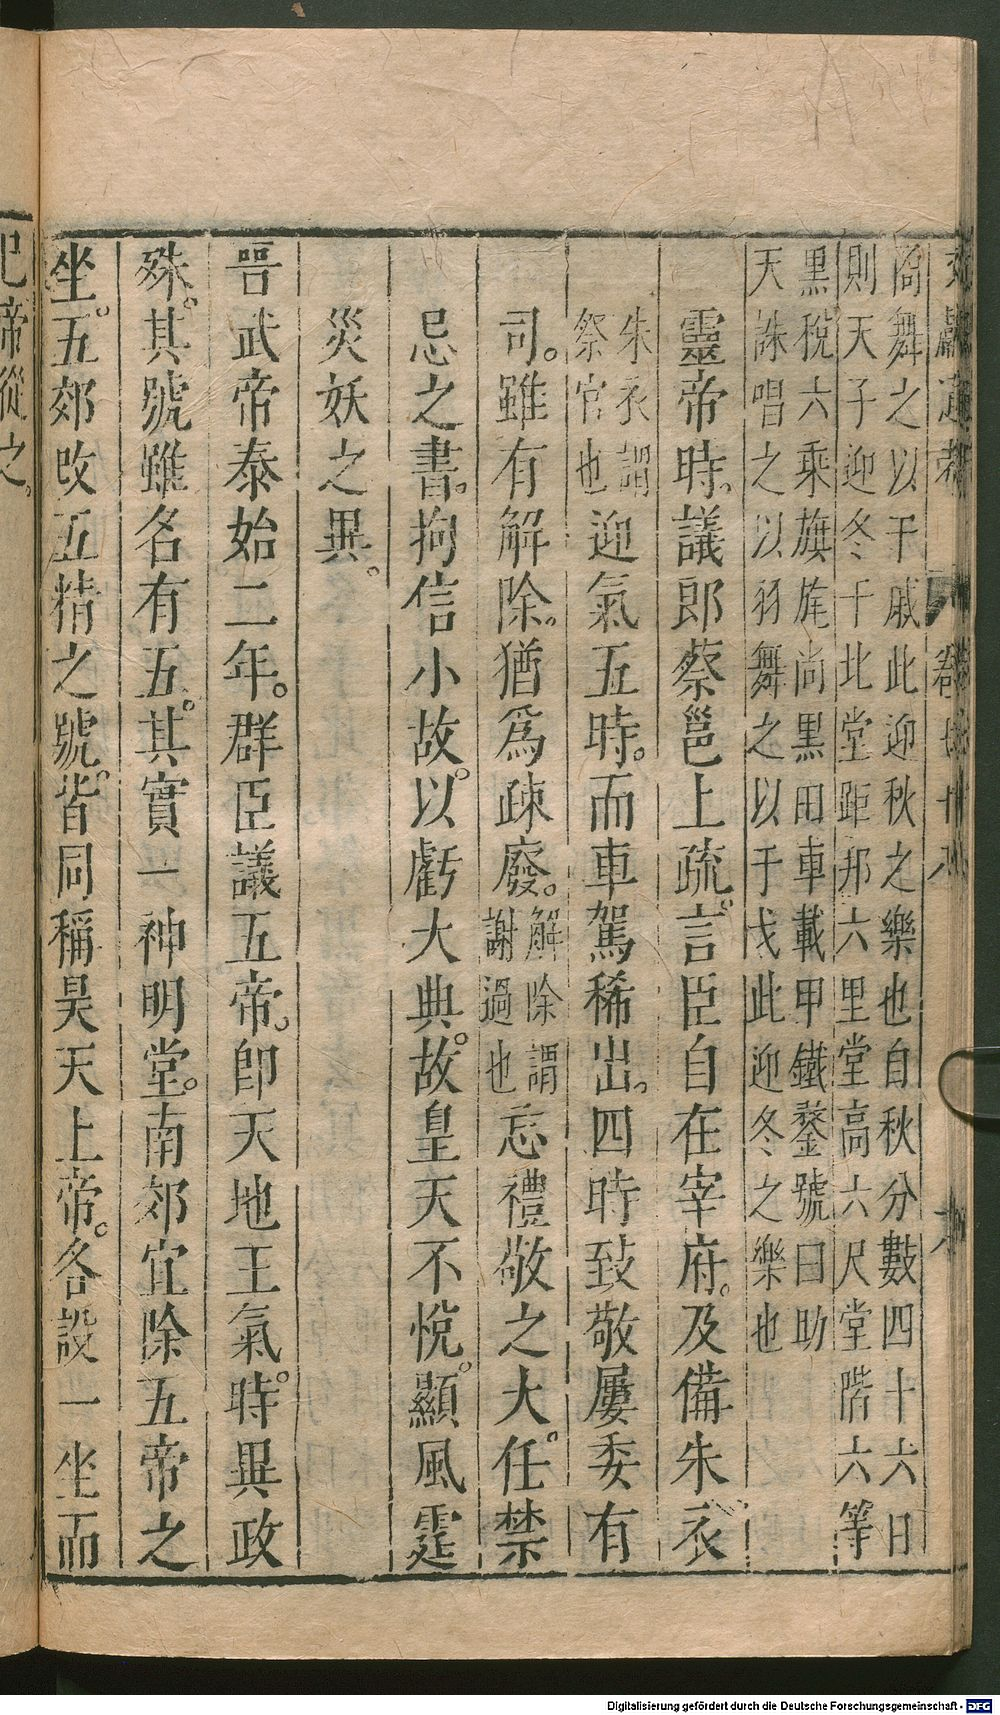 商舞之以干戚此迎秋之樂也自秋分數四十六日
則天子迎冬于北堂距邦六里堂高六尺堂階六等
黒稅六乘旗旄尚黒田車載甲鐵鍪號曰助
天誅唱之以羽舞之以干戈此迎冬之樂也
靈帝時。議郎蔡邕上疏。言臣自在宰府。及備朱衣
朱衣謂
祭官也
迎氣五時。而車駕稀出。四時致敬屢委有
司。雖有解除。猶爲疎廢。
解除謂
謝過也
忘禮敬之大。任禁
忌之書。拘信小故。以虧大典。故皇天不悅。顯風霆
災妖之異。
晉武帝泰始二年。群臣議五帝。卽天地王氣。時異政
殊。其號雖名有五。其實一神明堂。南郊宜除五帝之
坐。五郊改五精之號。皆同稱昊天上帝。各設一坐而
祀帝從之。
Digitalisierung gefördert durch die Deutsche Forschungsgemeinschaft - DFG